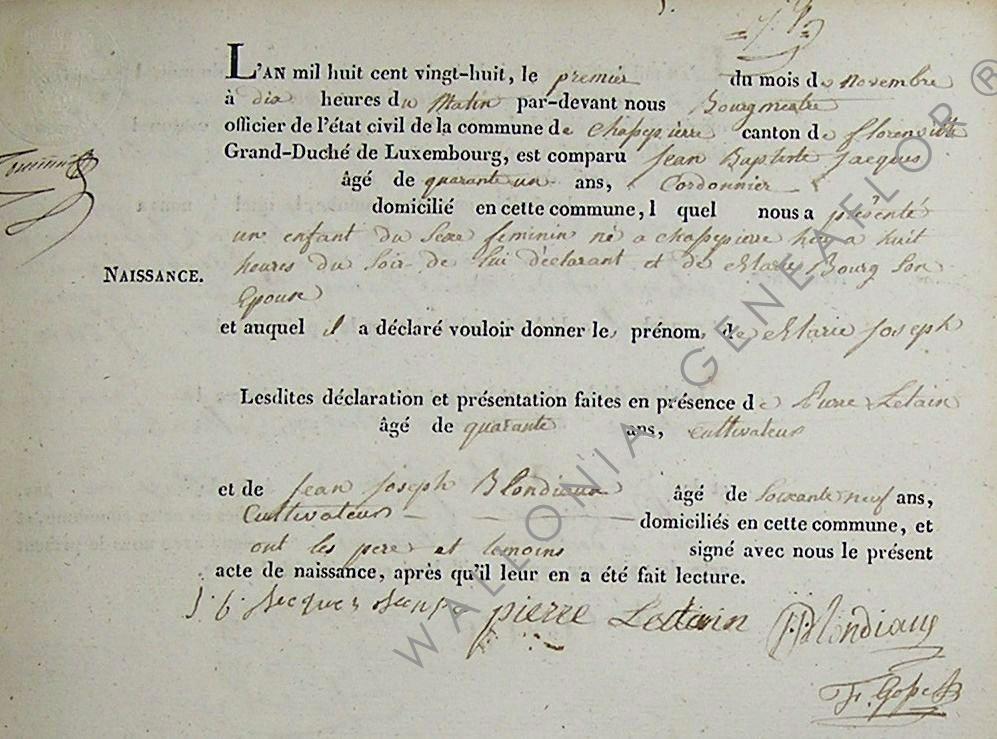 L'AN mil huit cent vingt-huit, le premier du mois de novembre
à dix heures du Matin par-devant nous Bourgmestre
officier de l'état civil de la commune de chassepierre canton de florenville
Grand-Duché de Luxembourg, est comparu Jean Baptiste Jacques
âgé de quarante un ans, Cordonnier
domicilié en cette commune, l quel nous a présenté
un enfant du Sexe feminin né a chassepierre hier a huit
heures du Soir de lui déclarant et de Marie Bourg Son
Epouse
NAISSANCE.
et auquel il a déclaré vouloir donner le prénom de Marie Joseph
Lesdites déclaration et présentation faites en présence de Pierre Letain
âgé de quarante ans, Cultivateur
et de Jean Joseph Blondiaux âgé de Soixante neuf ans,
Cultivateur domiciliés en cette commune, et
ont les pere et temoins signé avec nous le présent
acte de naissance, après qu'il leur en a été fait lecture.
J. b. Jacques pierre Letain Blondiaux
WALLONIA GENEAFLOR ®